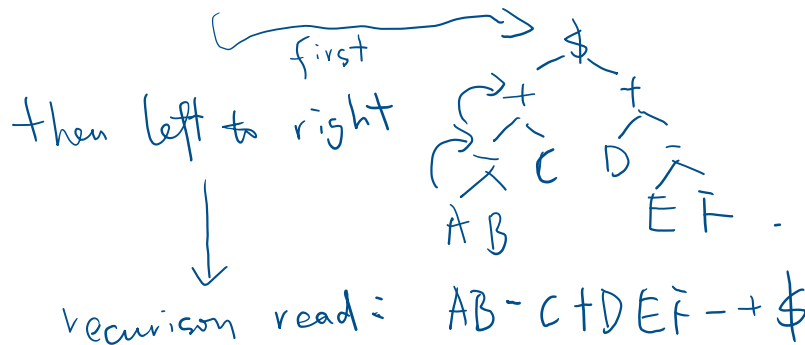 first
$
+ +
then left to right
- C D -
A B E F .
recurison read: AB-C+DEF-+$